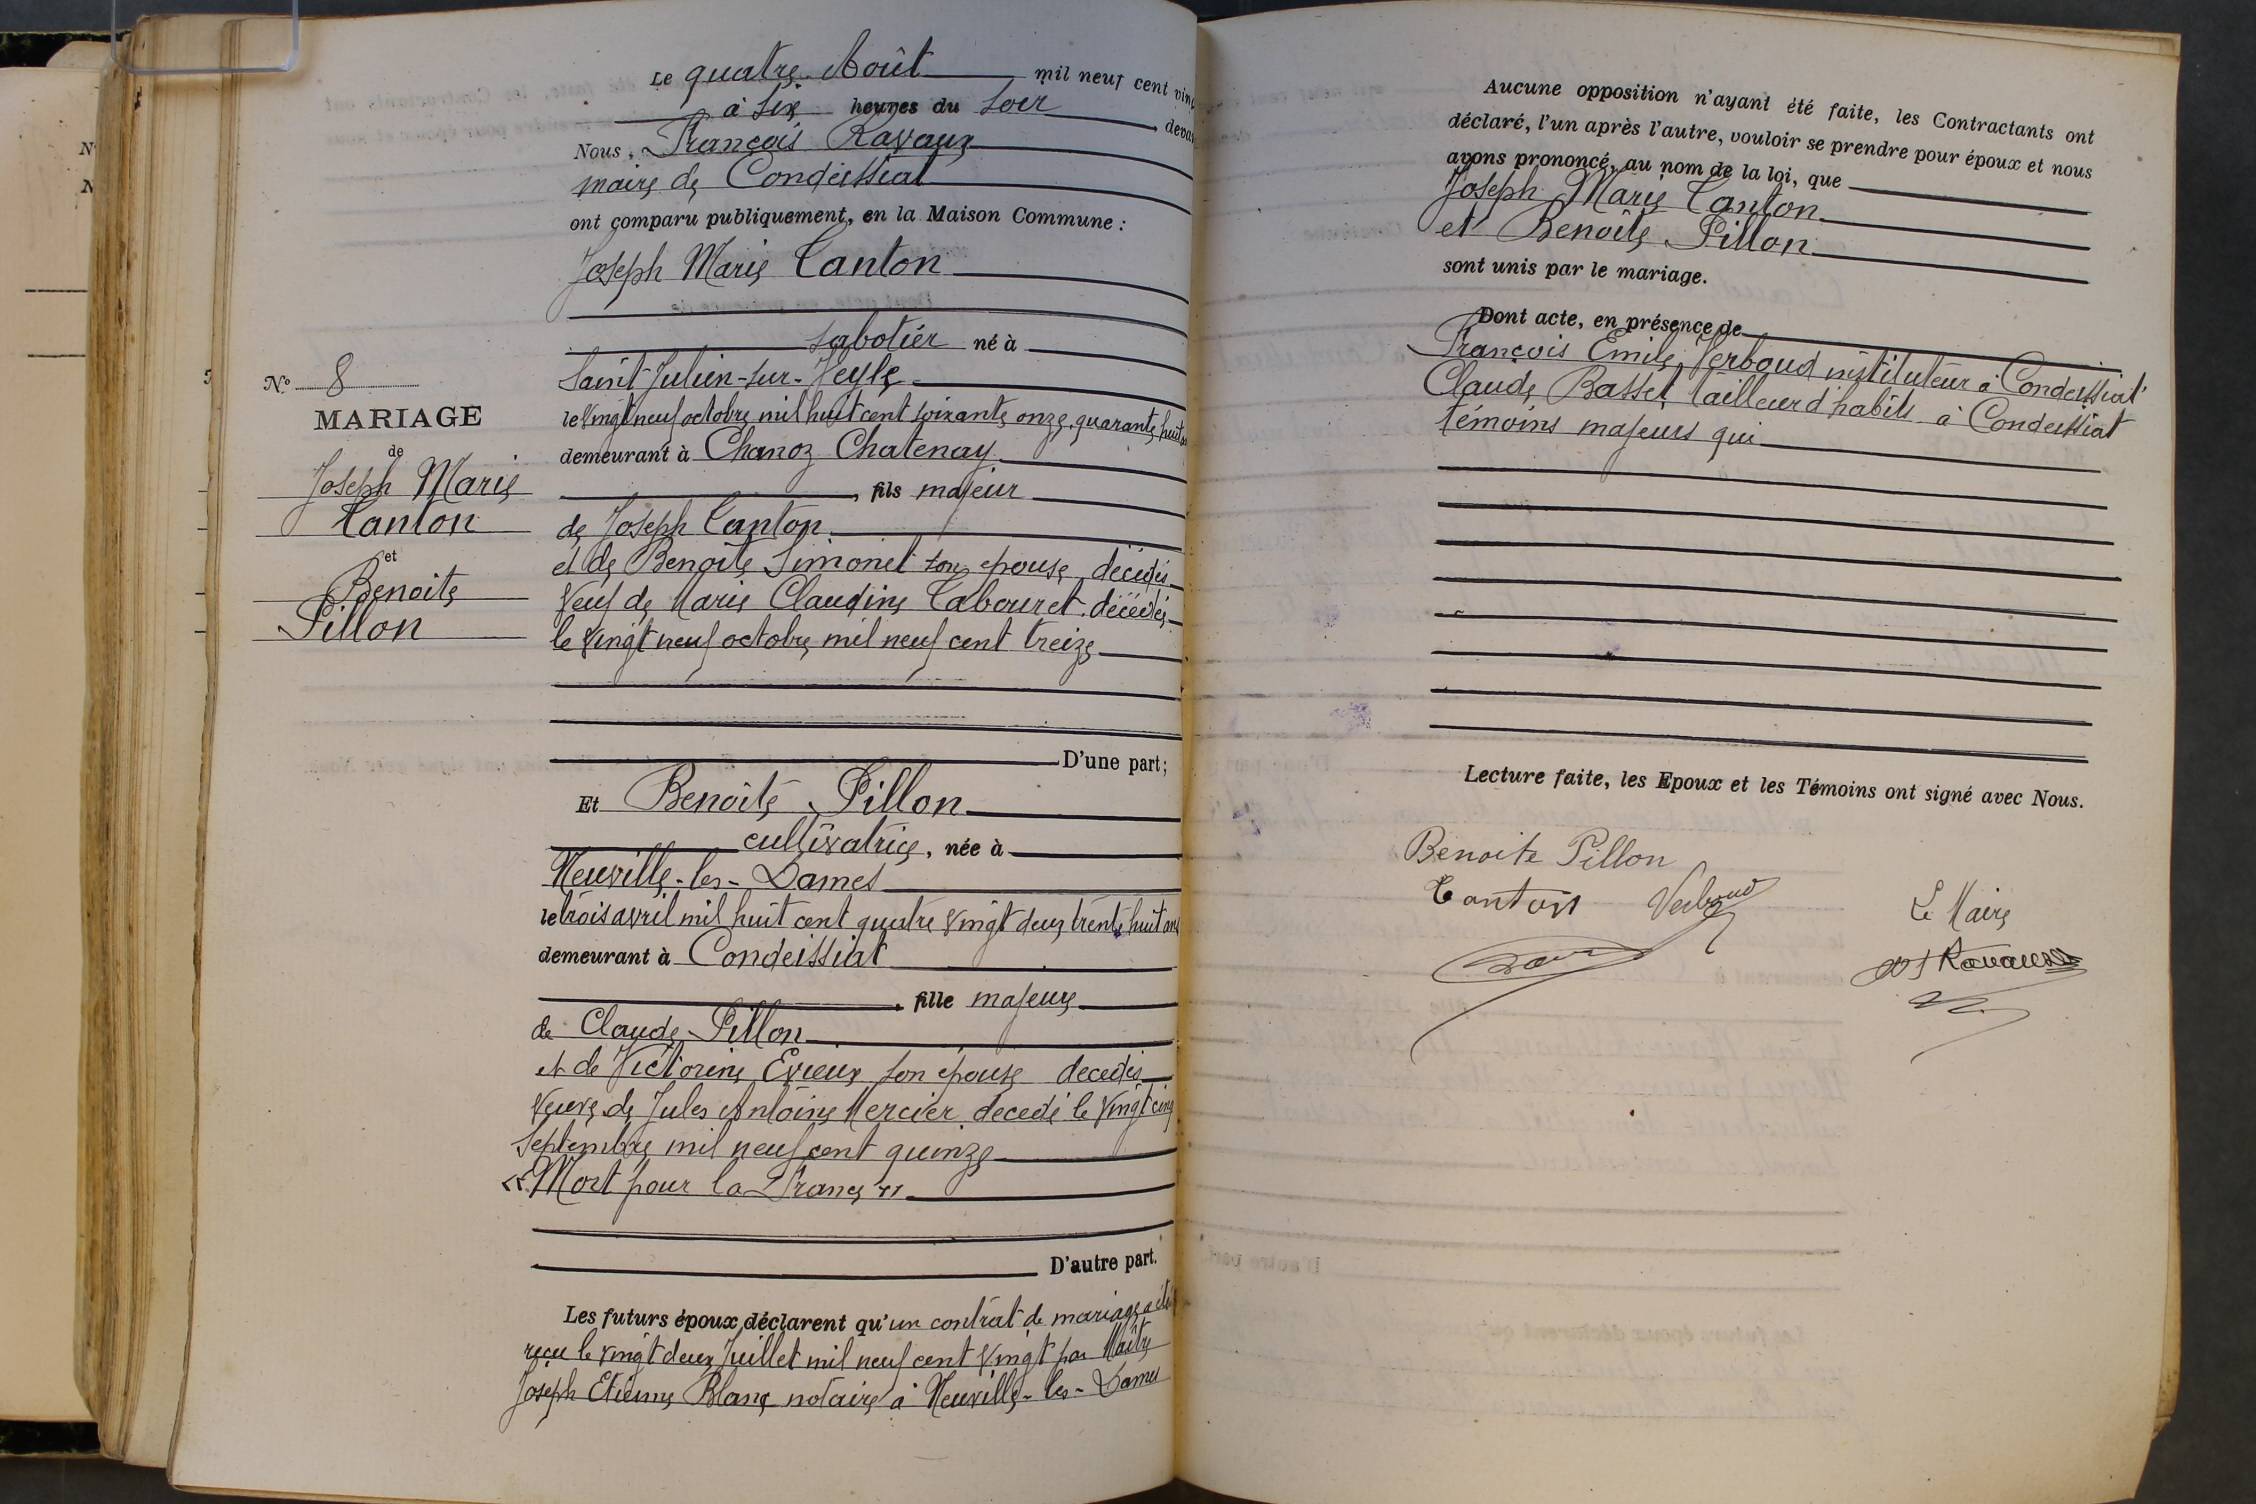 Le quatre Août mil neuf cent vingt
à six heures du soir, devant
Nous, François Ravaux
maire de Condeissiat
ont comparu publiquement, en la Maison Commune :
Joseph Marie Canton
sabotier né à
Saint Julien-sur-Veyle
le vingt neuf octobre mil huit cent soixante onze, quarante huit ans
demeurant à Chanoz Chatenay
, fils majeur
de Joseph Canton
et de Benoîte Simonet son épouse, décédés
Veuf de Marie Claudine Tabouret décédée
le vingt neuf octobre mil neuf cent treize
D'une part;
Et Benoîte Pillon
cultivatrice, née à
Neuville-les-Dames
le trois avril mil huit cent quatre vingt deux, trente huit ans
demeurant à Condeissiat
, fille majeure
de Claude Pillon
et de Victorine Evieux son épouse decedés
Veuve de Jules Antoine Mercier decedé le vingt cinq
Septembre mil neuf cent quinze
« Mort pour la France »
D'autre part.
Les futurs époux déclarent qu'un contrat de mariage a été
reçu le vingt deux Juillet mil neuf cent vingt par Maître
Joseph Etienne Blanc notaire à Neuville-les-Dames
N° 8
MARIAGE
de
Joseph Marie
Canton
et
Benoite
Pillon
Aucune opposition n'ayant été faite, les Contractants ont
déclaré, l'un après l'autre, vouloir se prendre pour époux et nous
avons prononcé, au nom de la loi, que
Joseph Marie Canton
et Benoîte Pillon
sont unis par le mariage.
Dont acte, en présence de
François Emile Verboud instituteur à Condeissiat
Claude Basset tailleur d'habits à Condeissiat
témoins majeurs qui
Lecture faite, les Epoux et les Témoins ont signé avec Nous.
Benoite Pillon
Canton Verboud
Le Maire
Ravaux